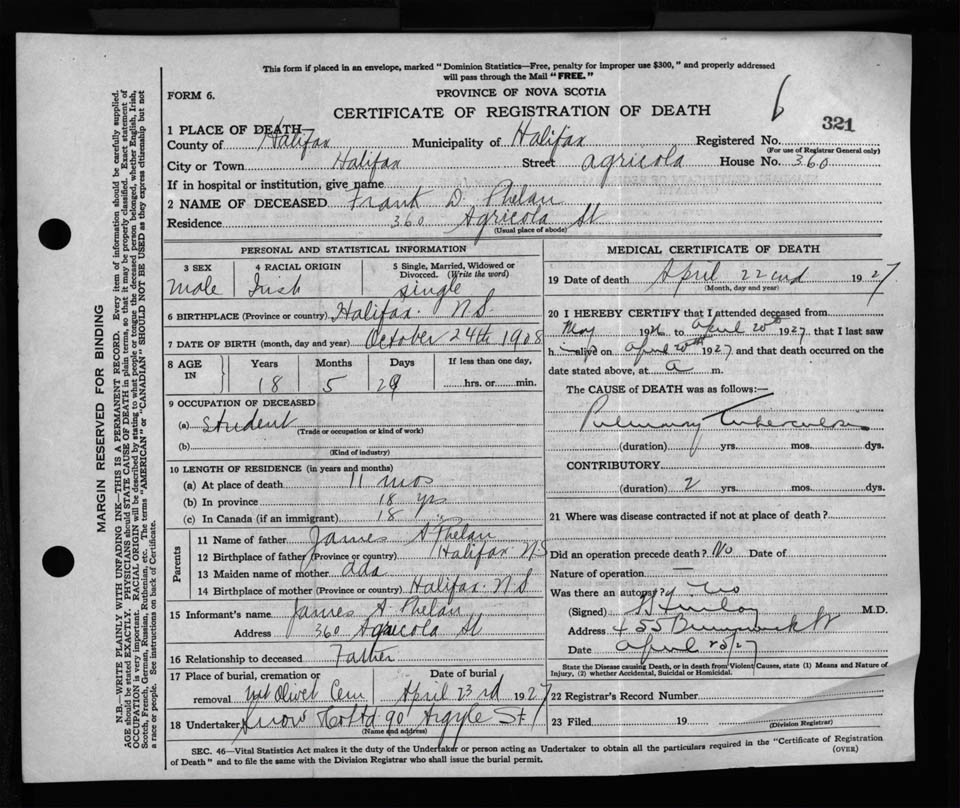 This form if placed in an envelope, marked "Dominion Statistics—Free, penalty for improper use $300," and properly addressed
will pass through the Mail "FREE."
FORM 6.
PROVINCE OF NOVA SCOTIA
CERTIFICATE OF REGISTRATION OF DEATH
6
321
1 PLACE OF DEATH—
County of Halifax Municipality of Halifax Registered No.
(For use of Registrar General only)
City or Town Halifax Street Agricola House No. 360
If in hospital or institution, give name
2 NAME OF DECEASED Frank D. Phelan
Residence 360 Agricola St
(Usual place of abode)
PERSONAL AND STATISTICAL INFORMATION
3 SEX 4 RACIAL ORIGIN 5 Single, Married, Widowed or
Divorced. (Write the word)
Male Irish Single
6 BIRTHPLACE (Province or country) Halifax. N.S.
7 DATE OF BIRTH (month, day and year) October 24th 1908
8 AGE IN Years Months Days If less than one day,
18 5 29 hrs. or min.
9 OCCUPATION OF DECEASED
(a) Student
(Trade or occupation or kind of work)
(b)
(Kind of industry)
10 LENGTH OF RESIDENCE (in years and months)
(a) At place of death 11 mos
(b) In province 18 yrs
(c) In Canada (if an immigrant) 18 "
Parents
11 Name of father James A Phelan
12 Birthplace of father (Province or country) Halifax N S
13 Maiden name of mother Ada
14 Birthplace of mother (Province or country) Halifax. N S
15 Informant's name James A. Phelan
Address 360 Agricola St
16 Relationship to deceased Father
17 Place of burial, cremation or Date of burial
removal Mt Olivet Cem April 23rd 1927
18 Undertaker Snow & Co Ltd 90 Argyle St
(Name and address)
MEDICAL CERTIFICATE OF DEATH
19 Date of death April 22nd 1927
(Month, day and year)
20 I HEREBY CERTIFY that I attended deceased from
May 1926 to April 20th 1927, that I last saw
him alive on April 20th 1927 and that death occurred on the
date stated above, at a m.
The CAUSE of DEATH was as follows:—
Pulmonary Tuberculosis
(duration) yrs. mos. dys.
CONTRIBUTORY
(duration) 2 yrs. mos. dys.
21 Where was disease contracted if not at place of death?
Did an operation precede death? No Date of
Nature of operation —
Was there an autopsy? No
(Signed) M.D.
Address 455 Brunswick St
Date April 23/27
State the Disease causing Death, or in death from Violent Causes, state (1) Means and Nature of
Injury, (2) whether Accidental, Suicidal or Homicidal.
22 Registrar's Record Number
23 Filed 19
(Division Registrar)
SEC. 46—Vital Statistics Act makes it the duty of the Undertaker or person acting as Undertaker to obtain all the particulars required in the "Certificate of Registration
of Death" and to file the same with the Division Registrar who shall issue the burial permit.
(OVER)
MARGIN RESERVED FOR BINDING
N.B.—WRITE PLAINLY WITH UNFADING INK—THIS IS A PERMANENT RECORD. Every item of information should be carefully supplied.
AGE should be stated EXACTLY. PHYSICIANS should STATE CAUSE OF DEATH in plain terms, so that it may be properly classified. Exact statement of
OCCUPATION is very important. RACIAL ORIGIN will be described by stating to what people or tongue the deceased person belonged, whether English, Irish,
Scotch, French, German, Russian, Ruthenian, etc. The terms "AMERICAN" or "CANADIAN" SHOULD NOT BE USED as they express citizenship but not
a race or people. See instructions on back of Certificate.